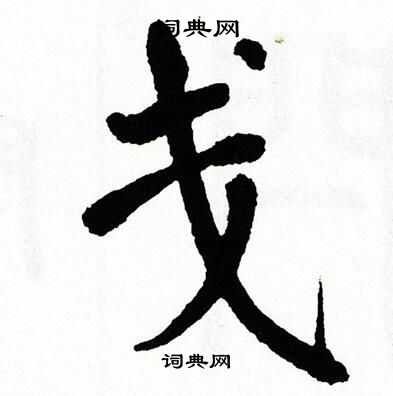 词典网
戋
词典网